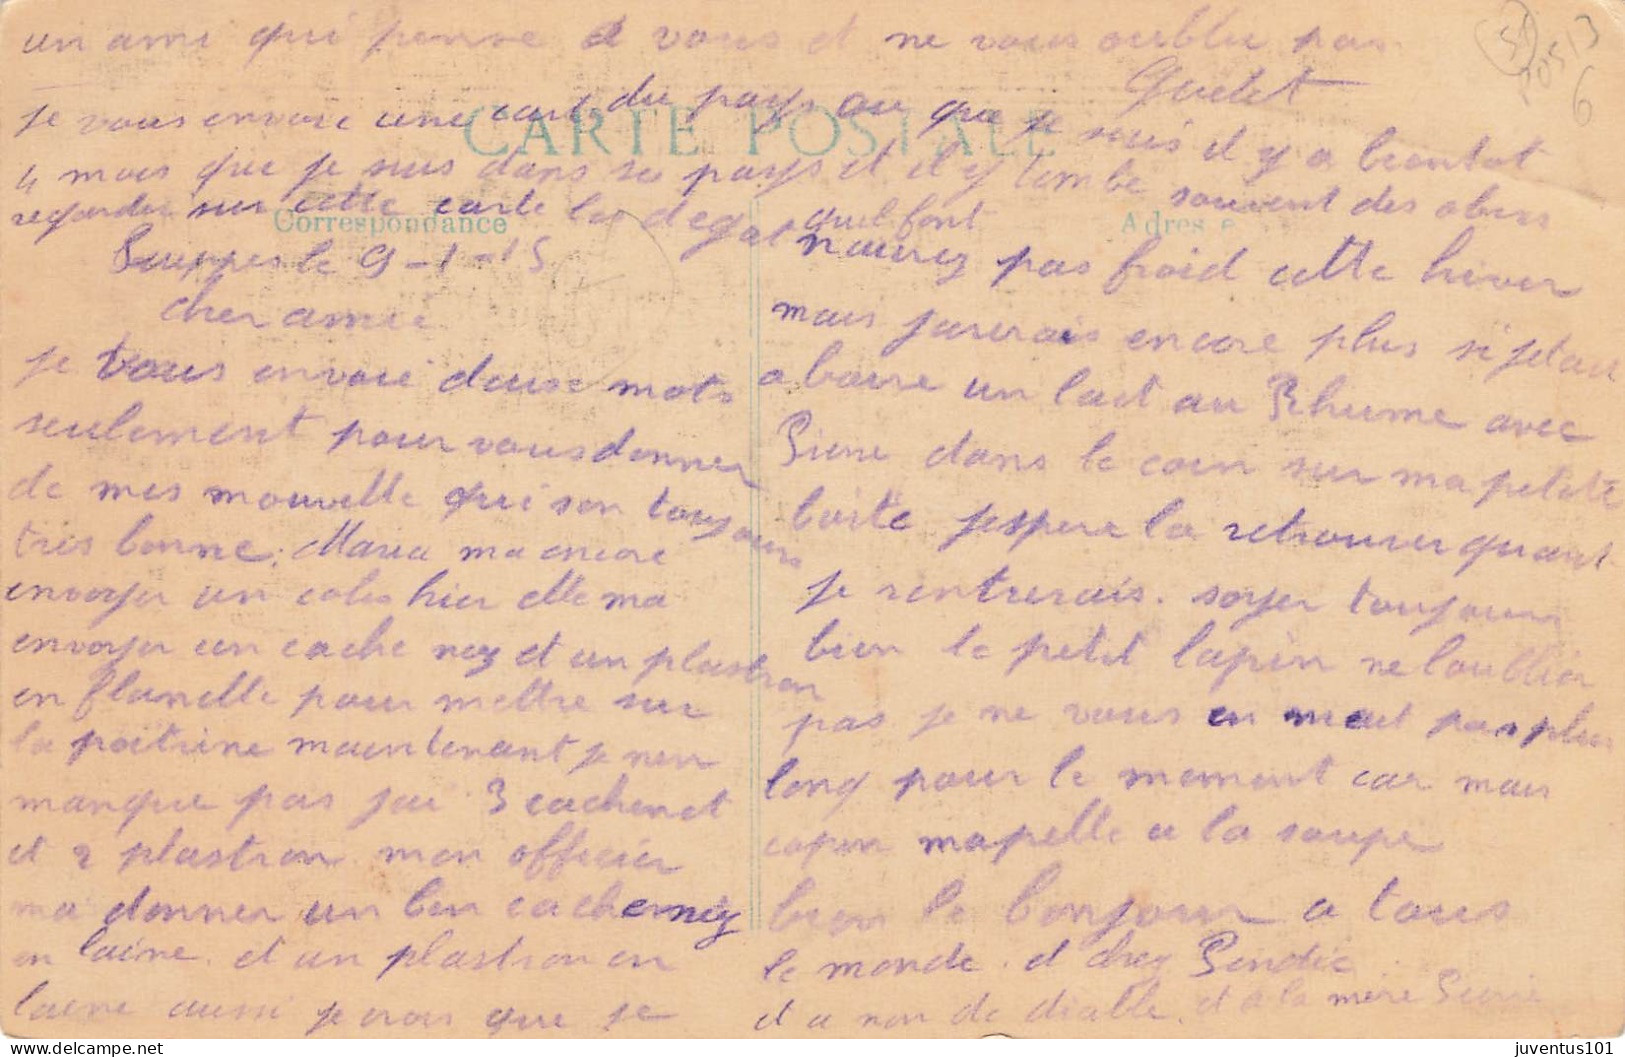 un ami qui pense a vous et ne vous oublie pas
Guelet
je vous envoie une cart du pays ou que je suis il y a bientot
4 mois que je suis dans se pays et il y tombe souvent des obus
regarder sur cette carte les degat quil font
CARTE POSTALE
Correspondance
Adresse
Suippes le 9-1-15
cher amie
je vous envoie deuse mots
seulement pour vous donner
de mes nouvelle qui son toujours
tres bonne. Maria ma encore
envoyer un colis hier elle ma
envoyer un cache nez et un plastron
en flanelle pour mettre sur
la poitrine maintenant je nen
manque pas jai 3 cachenet
et 2 plastron mon officier
ma donner un bon cachenez
en laine. et un plastron en
laine aussi je crois que je
naurez pas froid cette hiver
mais jaurais encore plus si jetais
a boire un lait au Rhume avec
Pierre dans le coin sur ma petite
boite jespere la retrouver quant
je rentrerais. soyer toujours
bien le petit lapin ne loublier
pas je ne vous en met pas plus
long pour le moment car mais
copin mapelle a la soupe
bien le bonjour a tous
le monde. et chez Pendic
et a non de diable. et a la mere Pierre
51
20513
6
juventus101